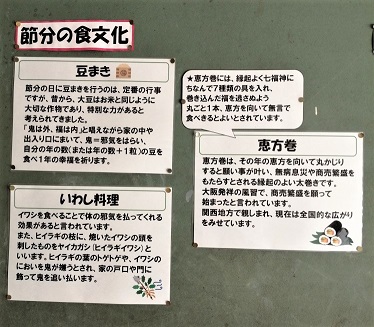 節分の食文化
豆まき
節分の日に豆まきを行うのは、定番の行事
ですが、昔から、大豆はお米と同じように
大切な作物であり、特別な力があると
考えられてきました。
「鬼は外、福は内」と唱えながら家の中や
出入り口にまいて、鬼＝邪気をはらい、
自分の年の数(または年の数＋1粒)の豆を
食べ1年の幸福を祈ります。
★恵方巻には、縁起よく七福神に
ちなんで7種類の具を入れ、
巻き込んだ福を逃さめよう
丸ごと1本、恵方を向いて無言で
食べきるとよいとされています。
恵方巻
恵方巻は、その年の恵方を向いて丸かじり
すると願い事が叶い、無病息災や商売繁盛を
もたらすとされる縁起のよい太巻きです。
大阪発祥の風習で、商売繁盛を願って
始まったと言われています。
関西地方で親しまれ、現在は全国的な広がり
をみせています。
いわし料理
イワシを食べることで体の邪気を払ってくれる
効果があると言われています。
また、ヒイラギの枝に、焼いたイワシの頭を
刺したものをヤイカガシ（ヒイラギイワシ）と
いいます。ヒイラギの葉のトゲトゲや、イワシの
においを鬼が嫌うとされ、家の戸口や門に
飾って鬼を追い払います。